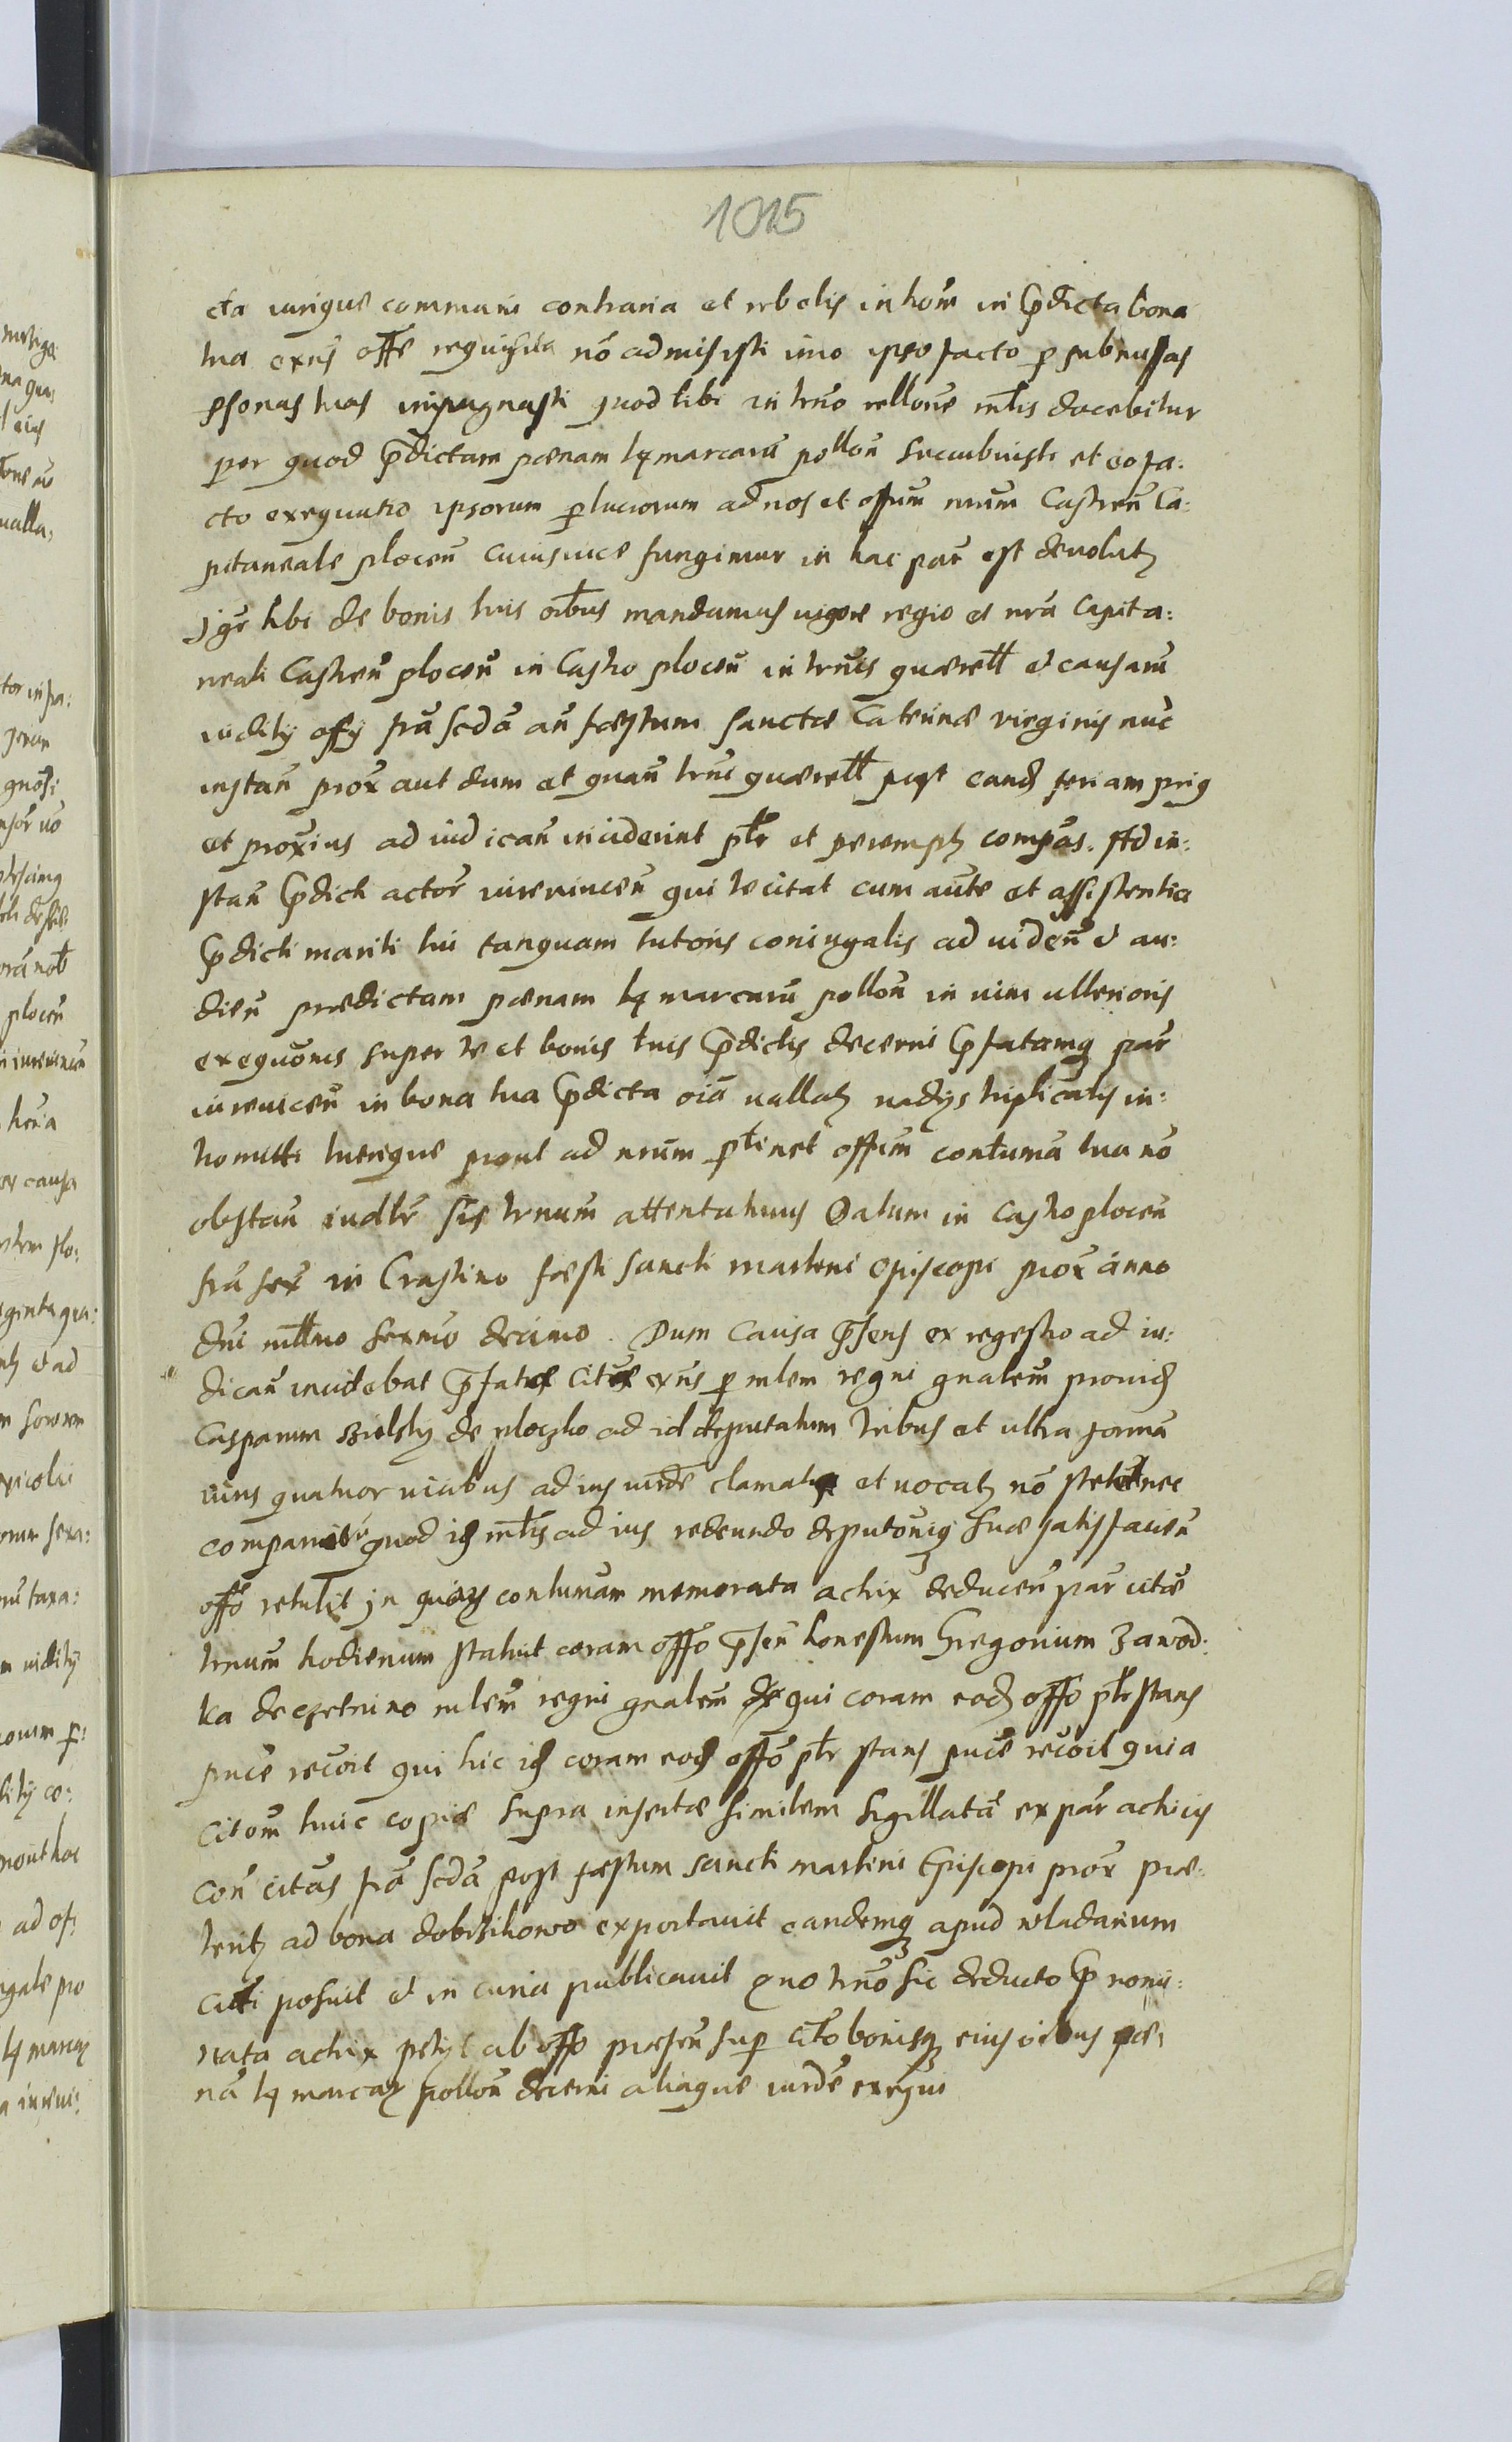 1015
cta iurique communi contraria et rebelis introm̄ in p̄dicta bona
tua exn̄s offe requisita nō admisisti imo ipso facto p submissas
psonas tuas impugnasti quod tibi in trno rellone mltis docebitur
per quod p̄dictam pœnam lx marcarū pollon̄ succubuisti et eo fa:
cto exequutio ipsorum p lucrorum ad nos et offum nrum Castren̄ Ca:
pitaneale plocen̄ cuius uice fungimur in hac par̄ est deuolutz
Jgr̄ tibi de bonis tuis oībus mandamus uigore regio et nrā Capita:
neali Castren̄ plocen̄ in Castro plocen̄ in trn̄is quærell et causarū
iudity offy frā scdā an̄ fæstum sanctæ Caterinæ virginis nūc
instan̄ prox̄ aut dum et quan̄ trn̄i quærell post eandz feriam prius
et proxīus ad iudican̄ inciderint pltr et peremptz compās. Ad in:
stan̄ p̄dicti actor̄ iureuincen̄ qui te citat cum aūte et assistentia
p̄dicti mariti tui tanquam tutoris coniugalis ad uiden̄ et au:
dien̄ prædictam pœnam lx marcarū pollon̄ in uim ulterioris
exequōnis super te et bonis tuis p̄dictis decerni p̄fatamq par̄
iureuicen̄ in bona tua p̄dicta oīa uallatz uadys triplicatis in:
tromitti tuerique prout ad nrūm ptinet offim contuma tua nō
obstan̄ iudltr̄ sis trnum attentaturus Datum in Castro plocen̄
frā sex̄ in Crastino fæsti Sancti martini episcopi prox̄ anno
dni mlllmo sexm̄o decimo. Dum Causa p̄sens ex regestro ad iu:
dican̄ incidebat p̄fatæ citæ exn̄s p mlem regni gnalem prouidz
Casparum Bielsky de ploczko ad id deputatum tribus et ultra formā
iuris quatuor uicibus ad ius iurde clamatæ et uocatz nō stetit nec
comparuit quod idz mltis ad ius redeundo deputōniq suæ satisfacien̄
offo retulit jn cuius contumam memorata actrix deducen̄ par̄ citæ
trnum hodienum statuit coram offo p̄sen̄ honestum Gregorium Zawod:
ka de czetrino mlem̄ regni gnalem̄ qui coram eodz offo pltr stans
pnce recōit qui hic idz coram eodz offo pltr stans pnce recōit quia
Citom huic copiæ supra insertæ similem sigillatā ex par̄ actricis
con̄ citās frā scdā post fæstum sancti martini Episcopi prox̄ præ:
teritz ad bona dobrzikowo exportauit eandemq apud wladarium
citti posuit et in curia publicauit quo trno sic deducto p̄ nomi:
nata actrix petyt ab offo præsen̄ sup citto bonisq eius oībus pœ:
nā lx marcaz pollon̄ decerni aliaque iurde exequi